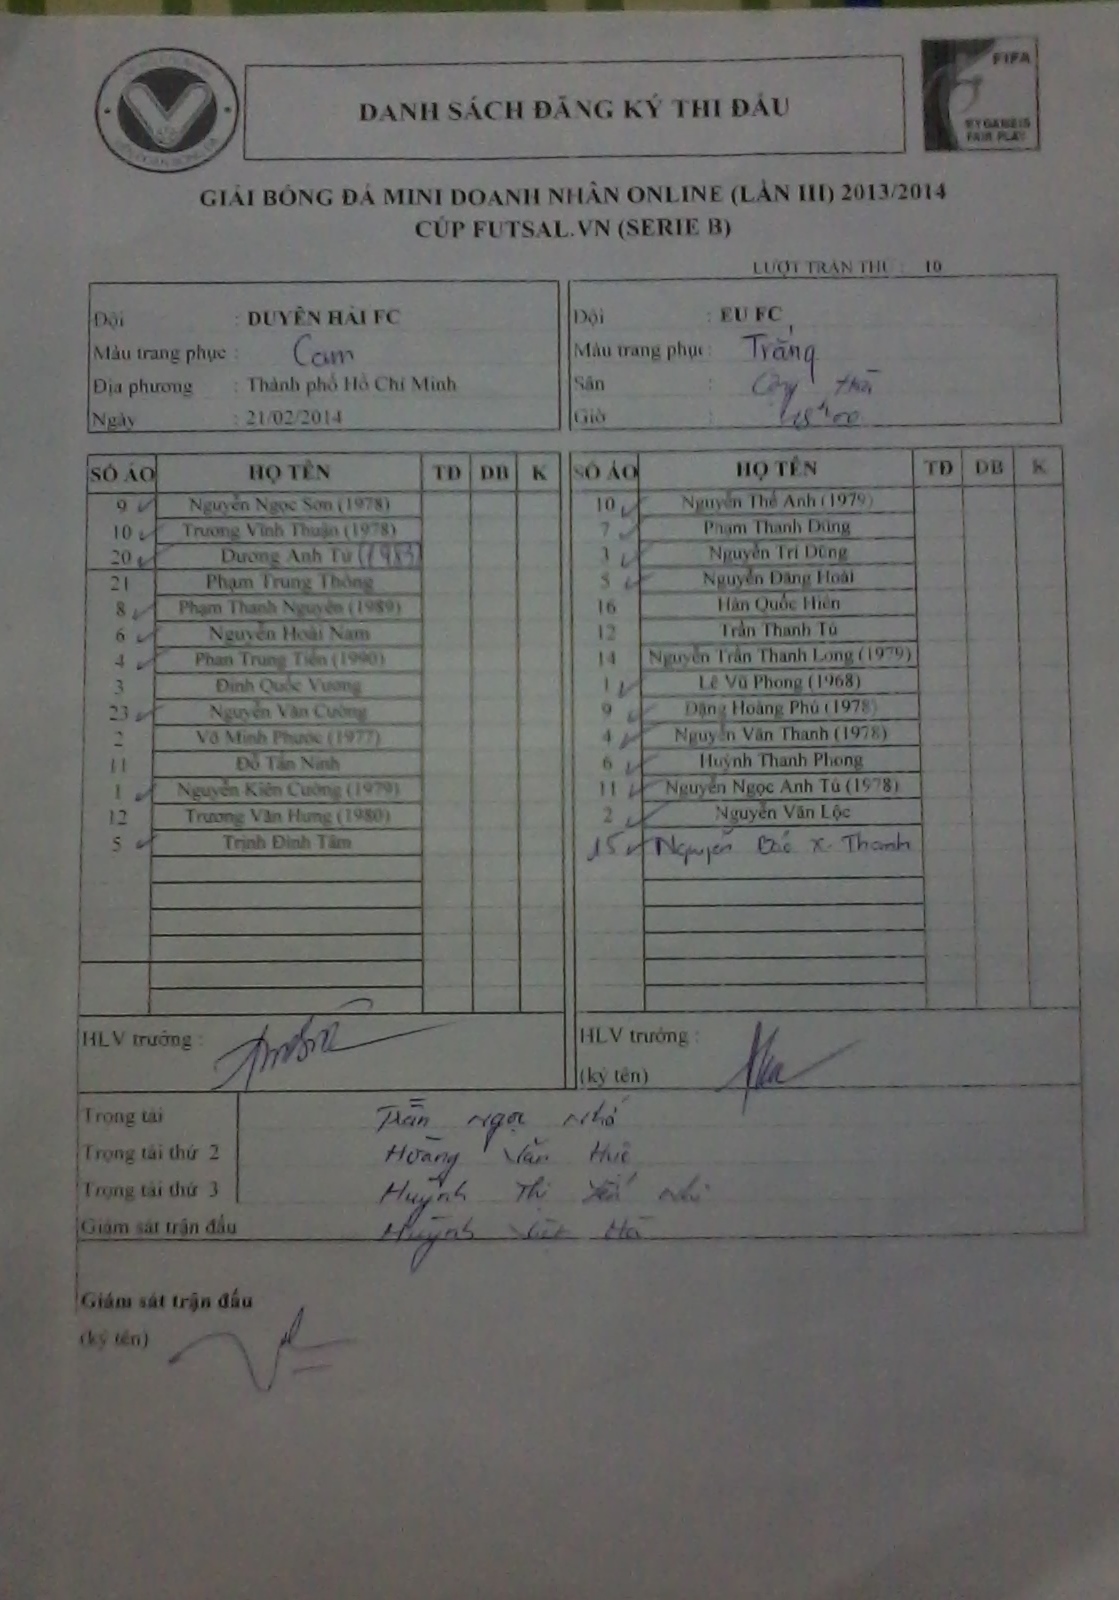 DANH SÁCH ĐĂNG KÝ THI ĐẤU
FIFA
MY GAME IS
FAIR PLAY
GIẢI BÓNG ĐÁ MINI DOANH NHÂN ONLINE (LẦN III) 2013/2014
CÚP FUTSAL.VN (SERIE B)
LƯỢT TRẬN THỨ : 10
Đội : DUYÊN HẢI FC
Màu trang phục : Cam
Địa phương : Thành phố Hồ Chí Minh
Ngày : 21/02/2014
Đội : EU FC
Màu trang phục : Trắng
Sân :
Giờ : 18h00
SỐ ÁO HỌ TÊN TĐ DB K
9 Nguyễn Ngọc Sơn (1978)
10 Trương Vĩnh Thuận (1978)
20 Dương Anh Tú (1983)
21 Phạm Trung Thông
8 Phạm Thanh Nguyên (1989)
6 Nguyễn Hoài Nam
4 Phan Trung Tiến (1990)
3 Đinh Quốc Vương
23 Nguyễn Văn Cường
2 Võ Minh Phước (1977)
11 Đỗ Tấn Ninh
1 Nguyễn Kiên Cường (1979)
12 Trương Văn Hưng (1980)
5 Trịnh Đình Tâm
SỐ ÁO HỌ TÊN TĐ DB K
10 Nguyễn Thế Anh (1979)
7 Phạm Thanh Dũng
3 Nguyễn Trí Dũng
5 Nguyễn Đăng Hoài
16 Hàn Quốc Hiên
12 Trần Thanh Tú
14 Nguyễn Trần Thanh Long (1979)
1 Lê Vũ Phong (1968)
9 Đặng Hoàng Phú (1978)
4 Nguyễn Văn Thanh (1978)
6 Huỳnh Thanh Phong
11 Nguyễn Ngọc Anh Tú (1978)
2 Nguyễn Văn Lộc
15 Nguyễn X. Thanh
HLV trưởng :
HLV trưởng :
(ký tên)
Trọng tài Trần Ngọc Nhớ
Trọng tài thứ 2 Hoàng Văn Huê
Trọng tài thứ 3 Huỳnh Thị Yến Nhi
Giám sát trận đấu Huỳnh Việt Hà
Giám sát trận đấu
(ký tên)